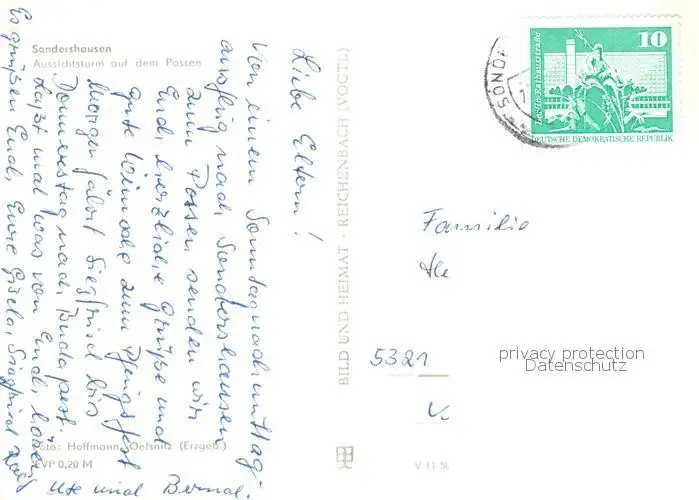 Sondershausen
Aussichtsturm auf dem Possen
Liebe Eltern!
Von einem Sonntagnachmittag-
ausflug nach Sondershausen
zum Possen senden wir
Euch herzliche Grüße und
gute Wünsche zum Pfingstfest
Morgen fährt Siegfried bis
Donnerstag nach Budapest.
Laßt mal was von Euch hören
Es grüßen Euch Eure Gisela, Siegfried
Ute und Bernd.
Foto: Hoffmann, Oelsnitz (Erzgeb.)
EVP 0,20 M
BILD UND HEIMAT · REICHENBACH (VOGTL)
V 11 50
SONDE
10
Berlin-Rathausstraße
DEUTSCHE DEMOKRATISCHE REPUBLIK
Familie
5321
privacy protection
Datenschutz